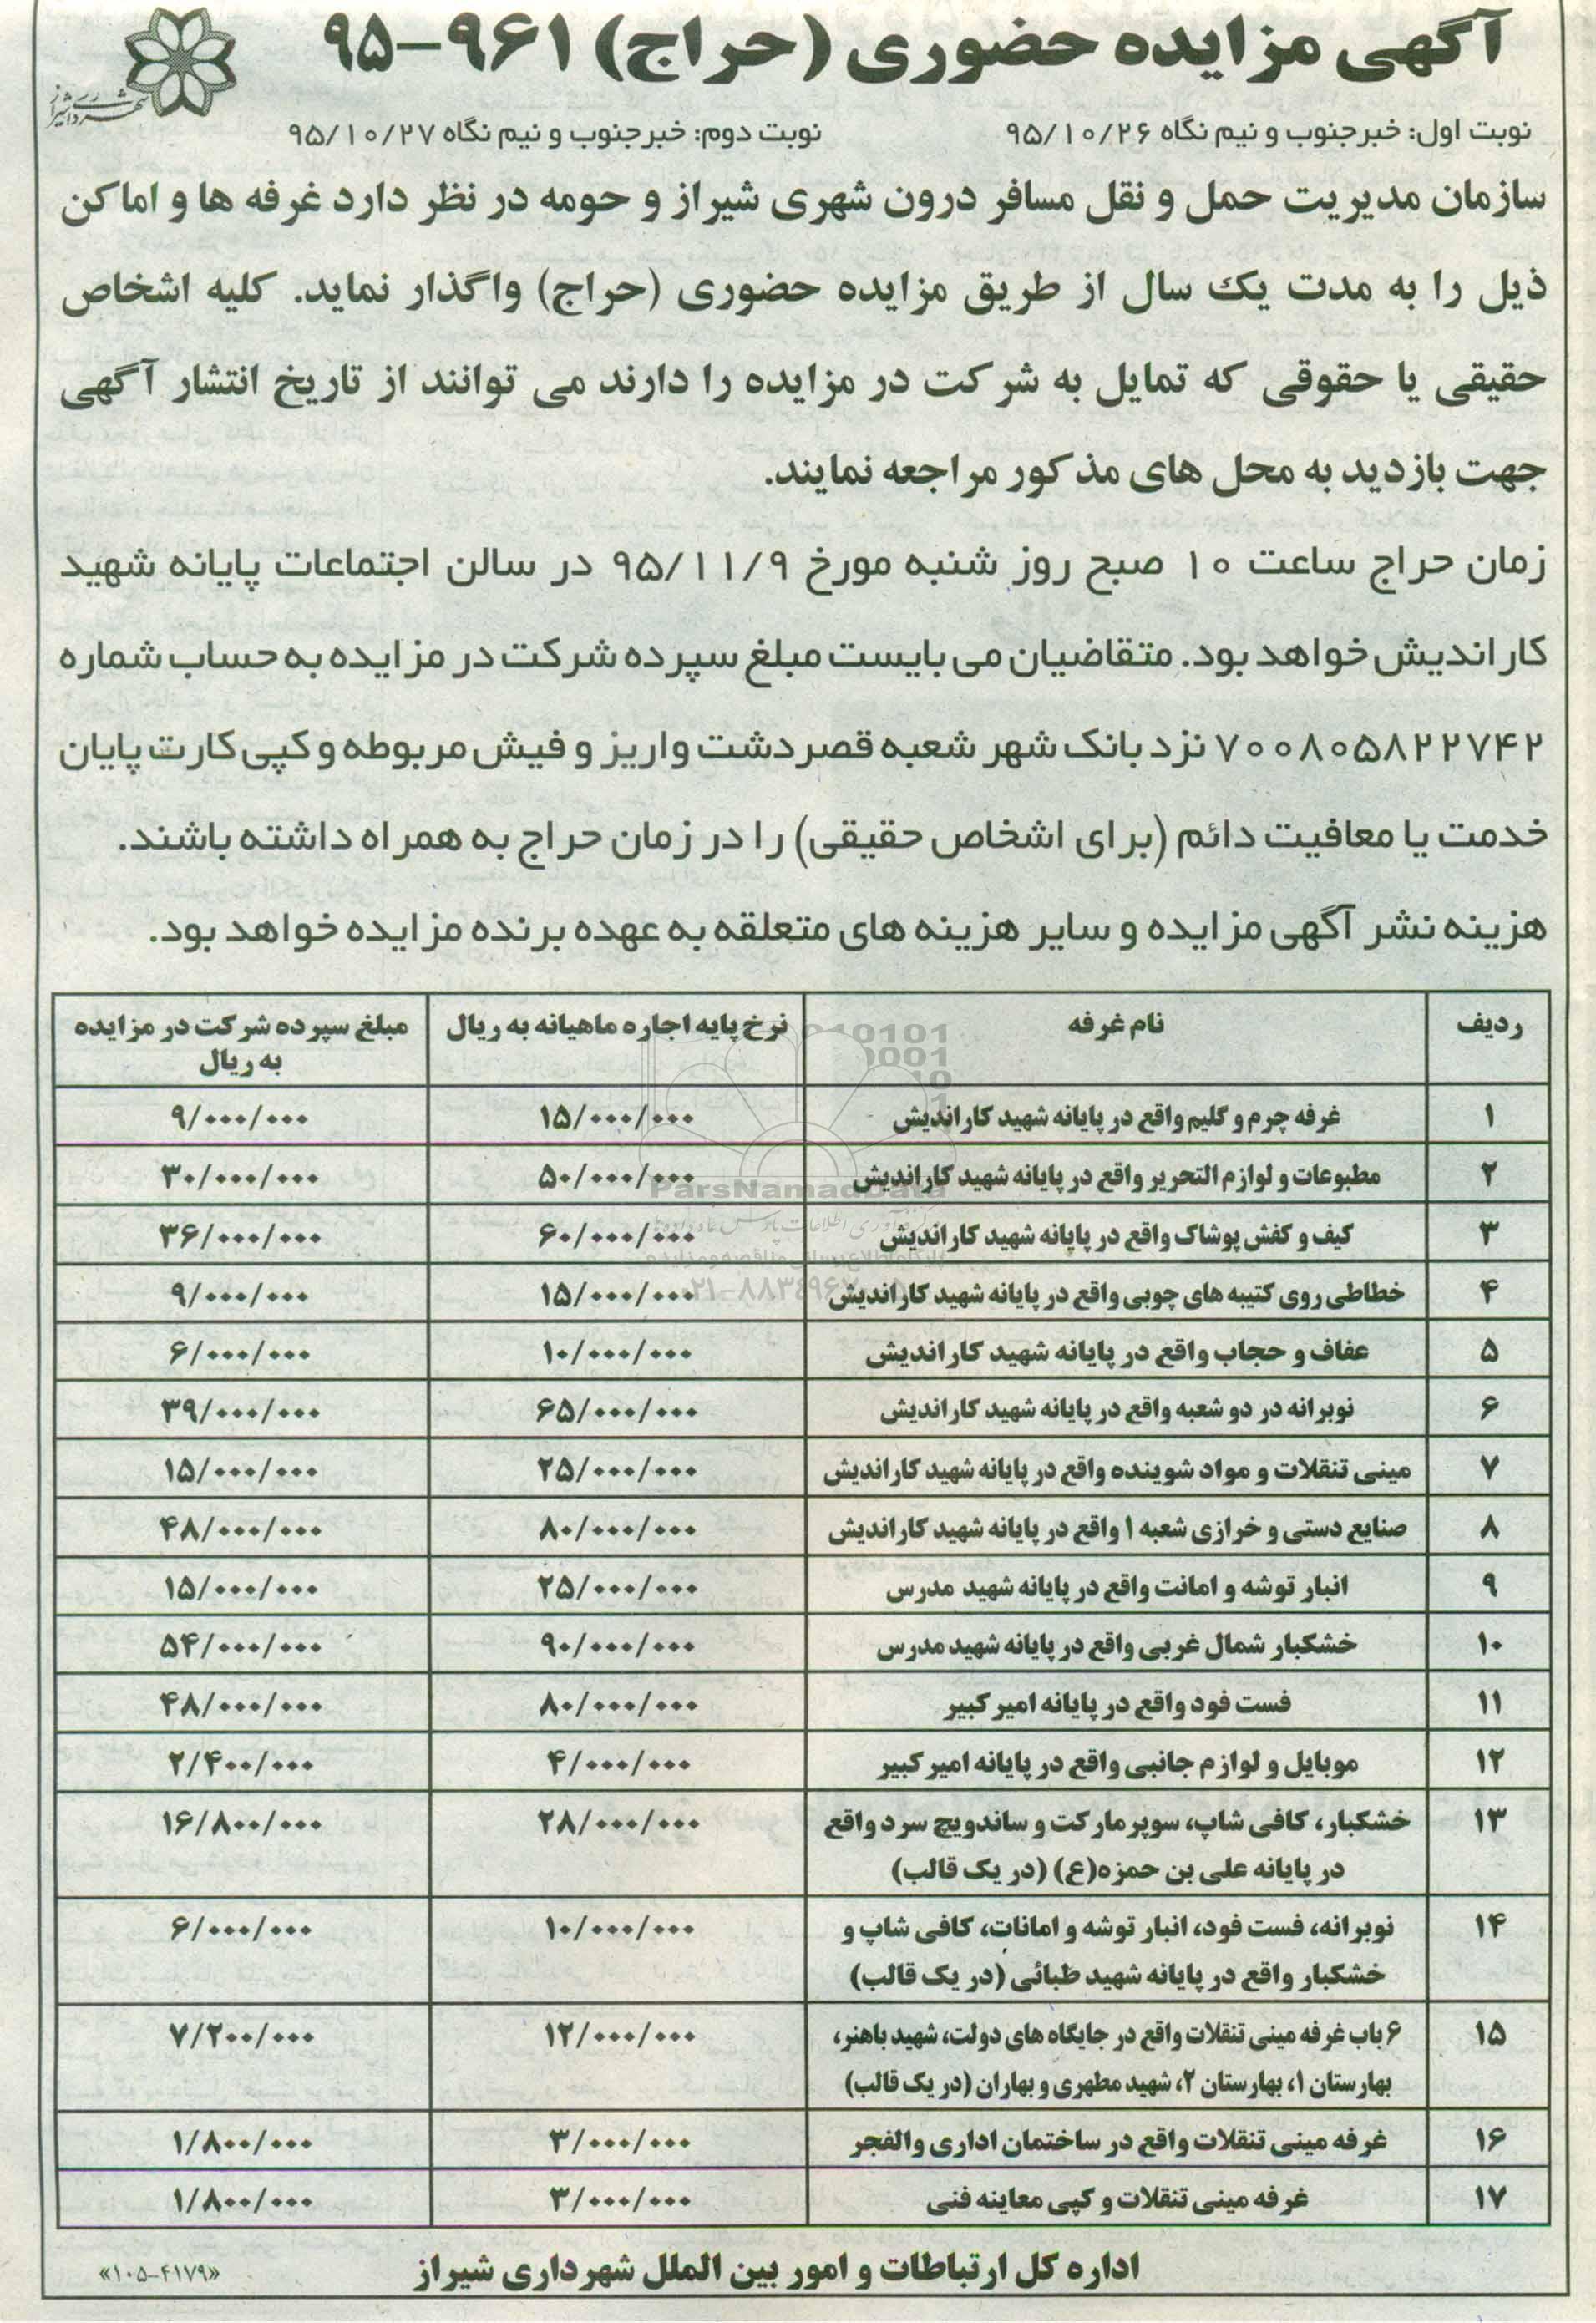 آگهی مزایده حضوری (حراج) ۹۶۱-۹۵
شهرداری شیراز
نوبت اول: خبرجنوب و نیم نگاه ۹۵/۱۰/۲۶ نوبت دوم: خبرجنوب و نیم نگاه ۹۵/۱۰/۲۷
سازمان مدیریت حمل و نقل مسافر درون شهری شیراز و حومه در نظر دارد غرفه ها و اماکن
ذیل را به مدت یک سال از طریق مزایده حضوری (حراج) واگذار نماید. کلیه اشخاص
حقیقی یا حقوقی که تمایل به شرکت در مزایده را دارند می توانند از تاریخ انتشار آگهی
جهت بازدید به محل های مذکور مراجعه نمایند.
زمان حراج ساعت ۱۰ صبح روز شنبه مورخ ۹۵/۱۱/۹ در سالن اجتماعات پایانه شهید
کاراندیش خواهد بود. متقاضیان می بایست مبلغ سپرده شرکت در مزایده به حساب شماره
۷۰۰۸۰۵۸۲۲۷۴۲ نزد بانک شهر شعبه قصردشت واریز و فیش مربوطه و کپی کارت پایان
خدمت یا معافیت دائم (برای اشخاص حقیقی) را در زمان حراج به همراه داشته باشند.
هزینه نشر آگهی مزایده و سایر هزینه های متعلقه به عهده برنده مزایده خواهد بود.
ردیف نام غرفه نرخ پایه اجاره ماهیانه به ریال مبلغ سپرده شرکت در مزایده
به ریال
۱ غرفه چرم و گلیم واقع در پایانه شهید کاراندیش ۱۵/۰۰۰/۰۰۰ ۹/۰۰۰/۰۰۰
۲ مطبوعات و لوازم التحریر واقع در پایانه شهید کاراندیش ۵۰/۰۰۰/۰۰۰ ۳۰/۰۰۰/۰۰۰
ParsNamadData
۳ کیف و کفش پوشاک واقع در پایانه شهید کاراندیش ۶۰/۰۰۰/۰۰۰ ۳۶/۰۰۰/۰۰۰
۴ خطاطی روی کتیبه های چوبی واقع در پایانه شهید کاراندیش ۱۵/۰۰۰/۰۰۰ ۹/۰۰۰/۰۰۰
۵ عفاف و حجاب واقع در پایانه شهید کاراندیش ۱۰/۰۰۰/۰۰۰ ۶/۰۰۰/۰۰۰
۶ نوبرانه در دو شعبه واقع در پایانه شهید کاراندیش ۶۵/۰۰۰/۰۰۰ ۳۹/۰۰۰/۰۰۰
۷ مینی تنقلات و مواد شوینده واقع در پایانه شهید کاراندیش ۲۵/۰۰۰/۰۰۰ ۱۵/۰۰۰/۰۰۰
۸ صنایع دستی و خرازی شعبه ۱ واقع در پایانه شهید کاراندیش ۸۰/۰۰۰/۰۰۰ ۴۸/۰۰۰/۰۰۰
۹ انبار توشه و امانت واقع در پایانه شهید مدرس ۲۵/۰۰۰/۰۰۰ ۱۵/۰۰۰/۰۰۰
۱۰ خشکبار شمال غربی واقع در پایانه شهید مدرس ۹۰/۰۰۰/۰۰۰ ۵۴/۰۰۰/۰۰۰
۱۱ فست فود واقع در پایانه امیرکبیر ۸۰/۰۰۰/۰۰۰ ۴۸/۰۰۰/۰۰۰
۱۲ موبایل و لوازم جانبی واقع در پایانه امیرکبیر ۴/۰۰۰/۰۰۰ ۲/۴۰۰/۰۰۰
۱۳ خشکبار، کافی شاپ، سوپرمارکت و ساندویچ سرد واقع ۲۸/۰۰۰/۰۰۰ ۱۶/۸۰۰/۰۰۰
در پایانه علی بن حمزه(ع) (در یک قالب)
۱۴ نوبرانه، فست فود، انبار توشه و امانات، کافی شاپ و ۱۰/۰۰۰/۰۰۰ ۶/۰۰۰/۰۰۰
خشکبار واقع در پایانه شهید طبائی (در یک قالب)
۱۵ ۶ باب غرفه مینی تنقلات واقع در جایگاه های دولت، شهید باهنر، ۱۲/۰۰۰/۰۰۰ ۷/۲۰۰/۰۰۰
بهارستان ۱، بهارستان ۲، شهید مطهری و بهاران (در یک قالب)
۱۶ غرفه مینی تنقلات واقع در ساختمان اداری والفجر ۳/۰۰۰/۰۰۰ ۱/۸۰۰/۰۰۰
۱۷ غرفه مینی تنقلات و کپی معاینه فنی ۳/۰۰۰/۰۰۰ ۱/۸۰۰/۰۰۰
اداره کل ارتباطات و امور بین الملل شهرداری شیراز
«۱۰۵-۴۱۷۹»